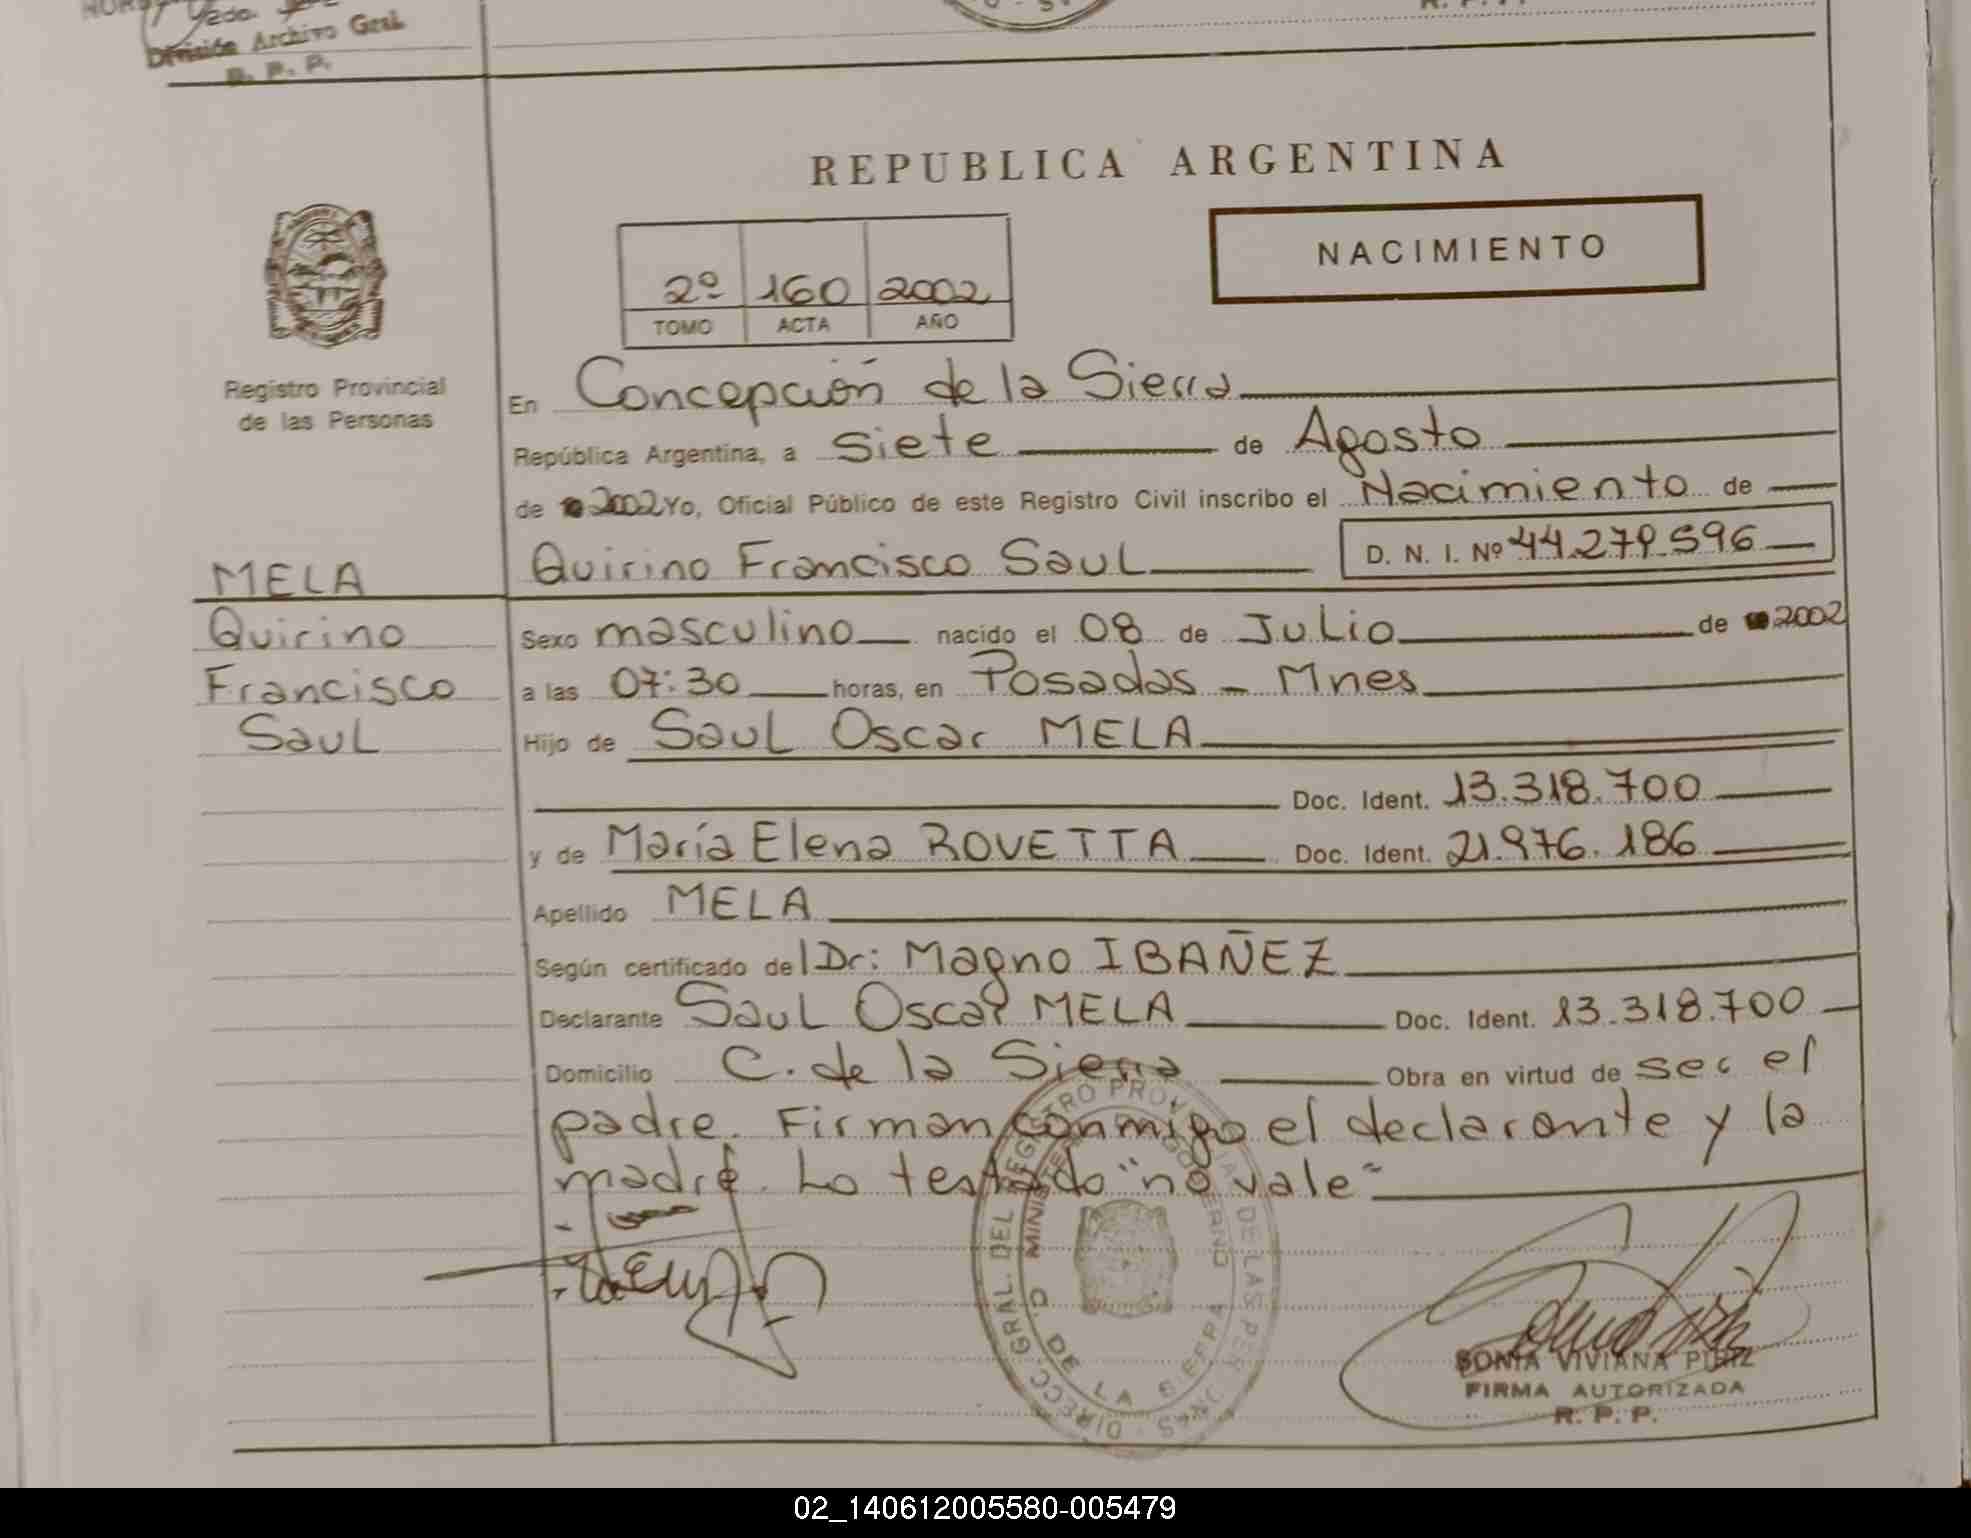 División Archivo Gral.
R. P. P.
REPUBLICA ARGENTINA
NACIMIENTO
2º 160 2002
TOMO ACTA AÑO
Registro Provincial
de las Personas
En Concepción de la Sierra
República Argentina, a siete de Agosto
de 2002 Yo, Oficial Público de este Registro Civil inscribo el Nacimiento de
Quirino Francisco Saul D. N. I. Nº 44.279.596
MELA
Quirino
Francisco
Saul
Sexo masculino nacido el 08 de Julio de 2002
a las 07:30 horas, en Posadas - Mnes
Hijo de Saul Oscar MELA
Doc. Ident. 13.318.700
y de María Elena ROVETTA Doc. Ident. 21.976.186
Apellido MELA
Según certificado del Dr: Magno IBAÑEZ
Declarante Saul Oscar MELA Doc. Ident. 13.318.700
Domicilio C. de la Sierra Obra en virtud de ser el
padre. Firman conmigo el declarante y la
madre. Lo testado "no vale"
DIRECC. GRAL. DEL REGISTRO PROVINCIAL DE LAS PERSONAS
MINISTERIO DE GOBIERNO
C. DE LA SIERRA
SONIA VIVIANA PIRIZ
FIRMA AUTORIZADA
R. P. P.
02_140612005580-005479